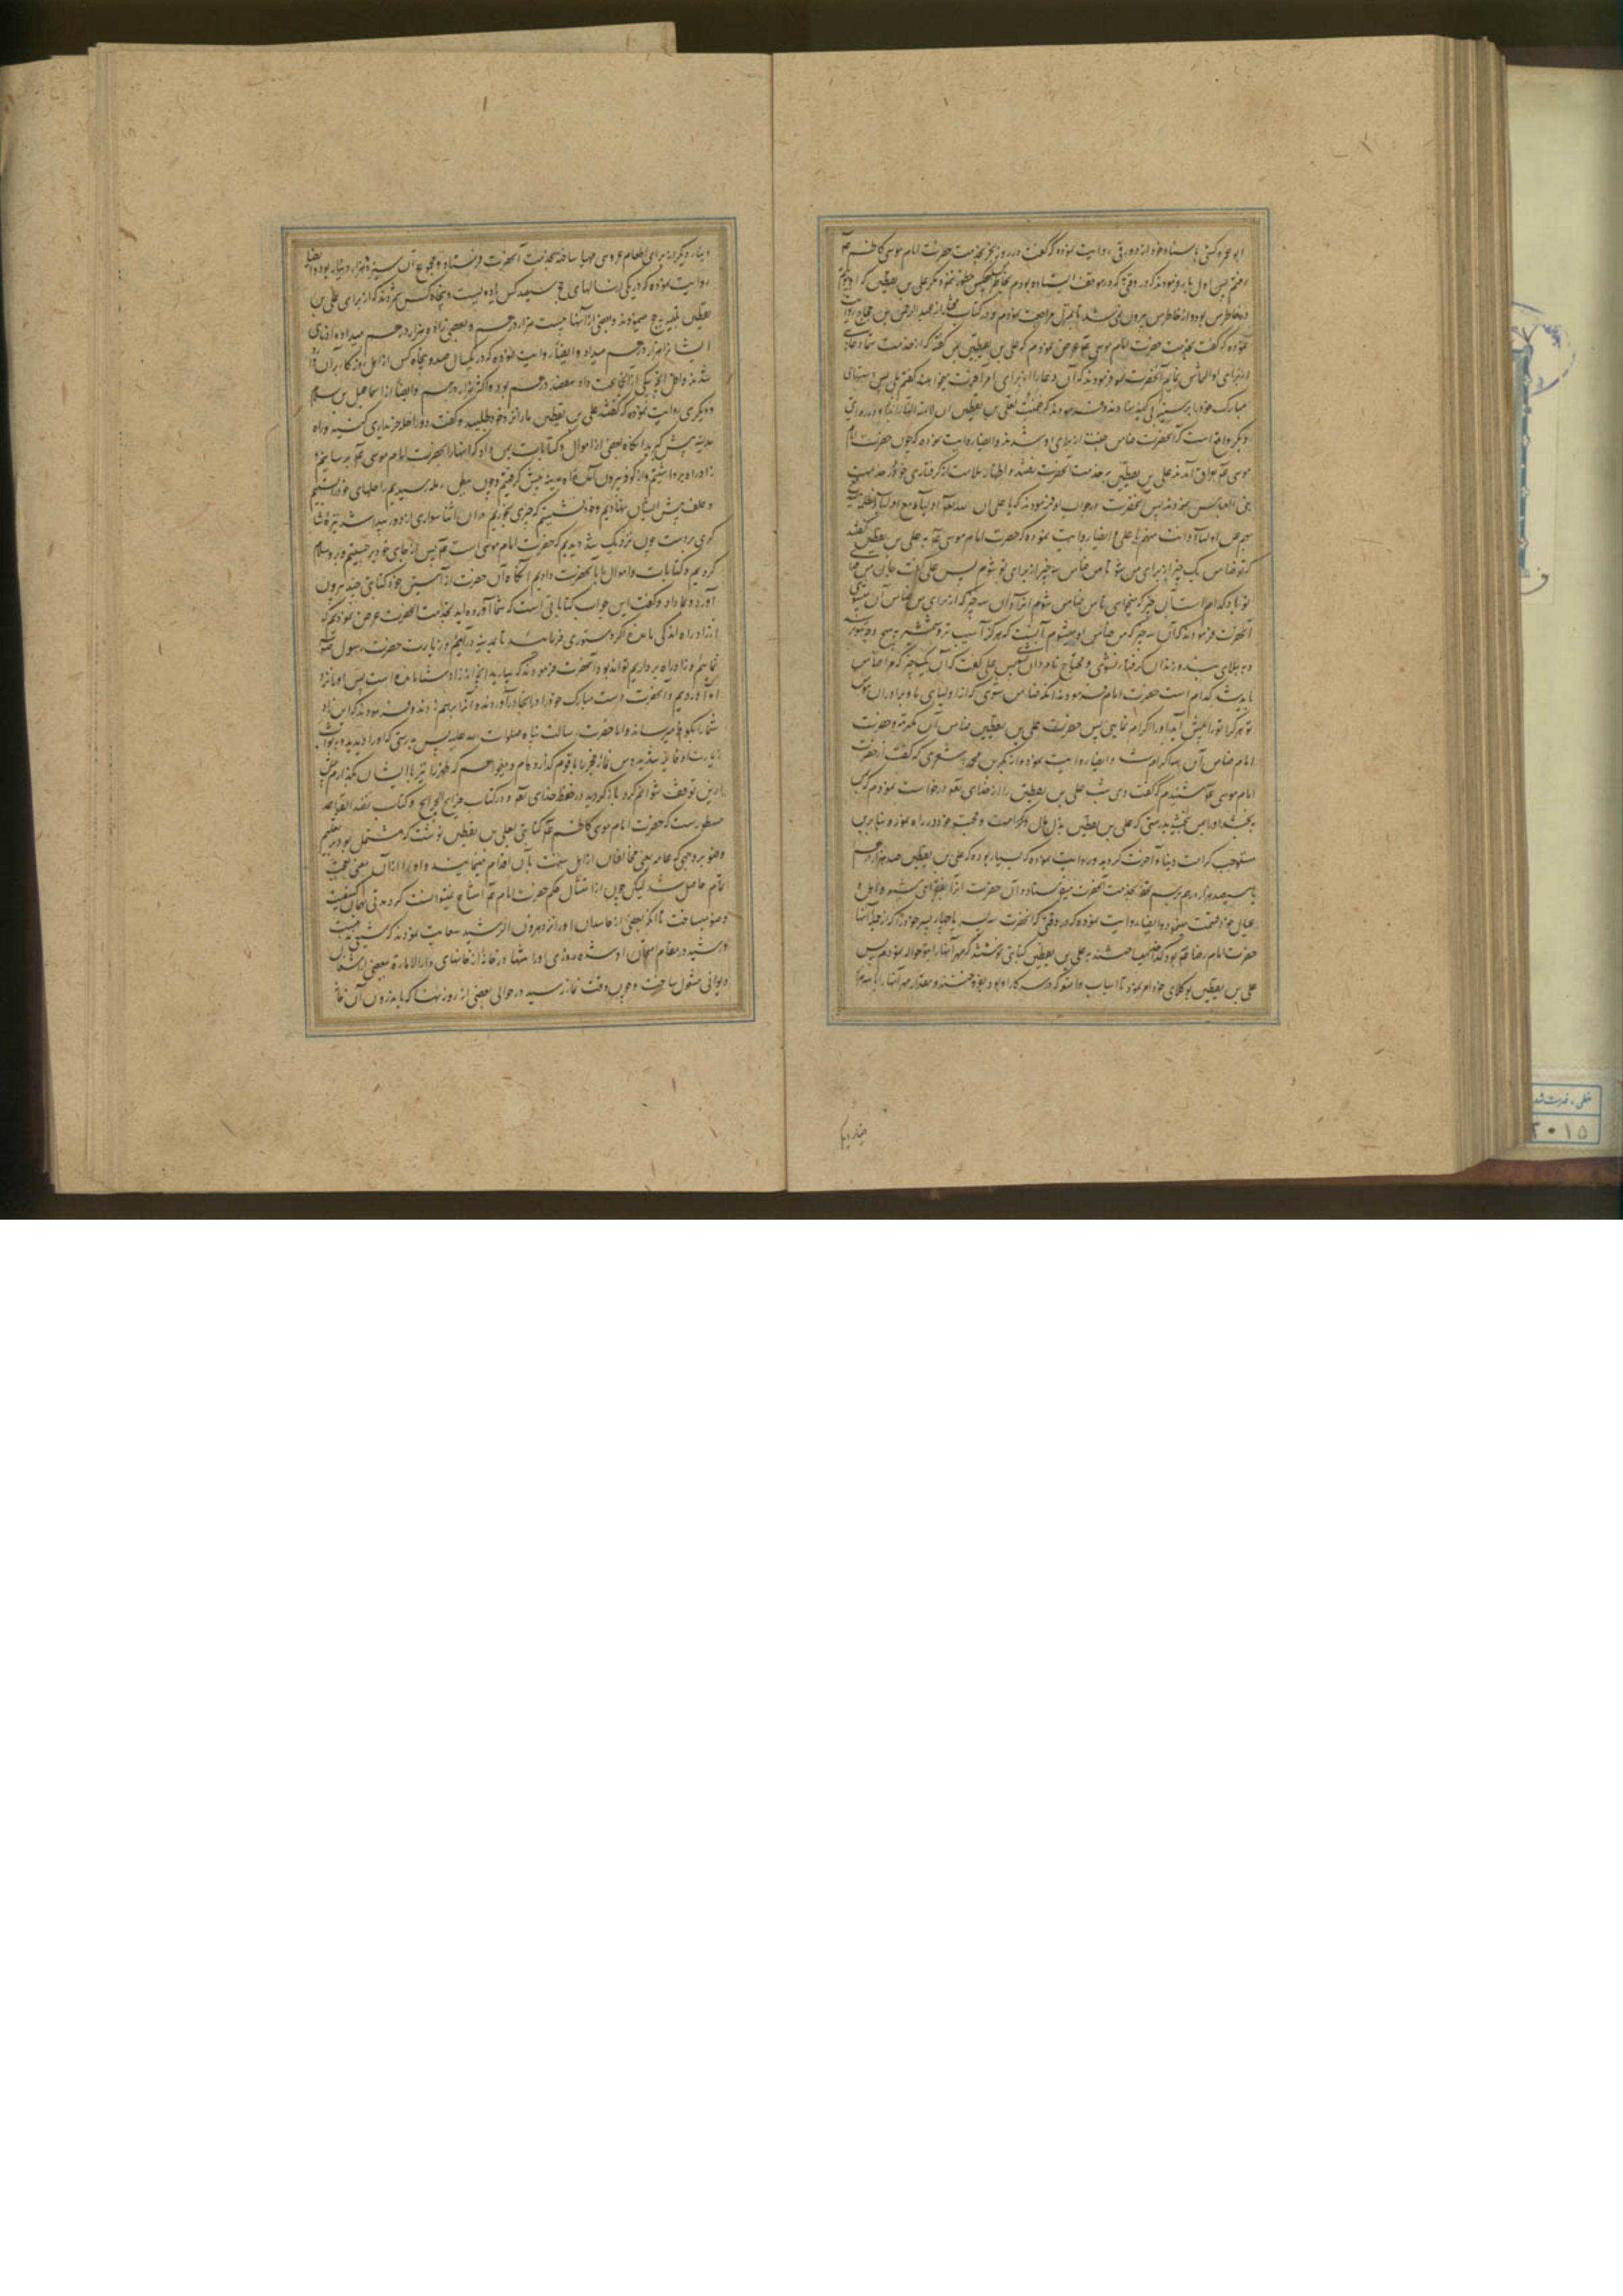 ابو عمرو کشی باسناد خود از داود رقی روایت نموده که گفت در روز نحر بخدمت حضرت امام موسی کاظم
رفتم پس اول بار فرمودند که در وقتی که در موقف ایستاده بودم بخاطرم هیچکس خطور ننمود مگر علی بن یقطین که او دایم
در خاطر من بود و از خاطر من بیرون نمی شد تا بمنزل مراجعت نمودم و در کتاب از عبد الرحمن بن حجاج روایت
نموده که گفت بخدمت حضرت امام موسی عرض نمودم که علی بن یقطین بمن گفته که از خدمت شما دعای
از برای او التماس نمایم آنحضرت فرمودند که آن دعا را از برای امر آخرت میخواهد گفتم بلی پس دستهای
مبارک خود را بر سینه نهادند و فرمودند که ضمنت لعلی بن یقطین ان لا تمسه النار ابدا و در روایتی
دیگر واقع است که آنحضرت ضامن جنت از برای او شدند و ایضا روایت نموده که چون حضرت امام
موسی بعراق آمدند علی بن یقطین بخدمت آنحضرت رفتند و اظهار ملامت از گرفتاری خود در خدمت
بنی العباس نمودند پس آنحضرت در جواب او فرمودند که یا علی ان لله تعالی اولیاء مع اولیاء الظلمة
بهم عن اولیائه و انت منهم یا علی و ایضا روایت نموده که حضرت امام موسی به علی بن یقطین گفتند
که تو ضامن یک چیز از برای من شو تا من ضامن سه چیز از برای تو شوم پس علی گفت جان من فدای
تو باد کدام است آن چیز که میخواهی تا من ضامن شوم و آن سه چیز که از برای من ضامن آن میشوی
آنحضرت فرمودند که آن سه چیز که من ضامن او میشوم آنست که هرگز آسیب شمشیر بتو نرسد
و به بلای بند و زندان گرفتار نشوی و محتاج نام و نان نشوی پس علی گفت که آن یک چیز که مرا ضامن
باید شد کدام است حضرت امام فرمودند آنکه ضامن شوی که از اولیای ما و برادران مؤمن
تو هر که ترا پیش آید او را اکرام نمایی پس حضرت علی بن یقطین ضامن آن مکرمت و حضرت
امام ضامن آن کرامت شد و ایضا روایت نموده از بکر بن محمد اشعری که گفت از حضرت
امام موسی شنیدم که گفت دی شب علی بن یقطین را از خدای تعالی درخواست نمودم که بمن
بخشد او را بمن بخشید بدرستی که علی بن یقطین بذل مال و محبت خود در راه ما نموده بنابرین
مستوجب کرامت دنیا و آخرت گردید و روایت نموده که بسیار بوده که علی بن یقطین صد هزار درهم
یا سیصد هزار درهم برسم تحفه بخدمت آنحضرت میفرستاد و آن حضرت آنرا بفقرای شیعه و اهل و
عیال خود قسمت مینمود و ایضا روایت نموده که در وقتی که آنحضرت سه پسر یا چهار پسر خود را که از جمله آنها
حضرت امام رضا بود کدخدا میساختند به علی بن یقطین کتابتی نوشتند که مهر آنها را بتو حواله نمودم پس
علی بن یقطین بوکلای خود امر نمود تا اسباب و امتعه که در سرکار او بود بفروختند و مقدار مهر آنها را با سه هزار
دینار دیگر
دینار دیگر که برای طعام عروسی مهیا ساخته بخدمت آنحضرت فرستاد و مجموع آن سیزده هزار دینار بود و ایضا
روایت نموده که در یکی از سالهای حج سیصد کس یا دویست و پنجاه کس شمردند که از برای علی بن
یقطین تلبیه حج مینمودند و بعضی از آنها بیست هزار درهم و بعضی را ده هزار درهم میداد و ادنای
ایشان را هزار درهم میداد و ایضا روایت نموده که در یکسال صد و پنجاه کس از اهل
درهم بود و اکثر هزار درهم و ایضا از اسماعیل بن سلام
و دیگری روایت نموده که گفتند علی بن یقطین ما را نزد خود طلبید و گفت دو راحله خریداری کنید و راه
مدینه پیش گیرید آنگاه بعضی از اموال و کتابات بمن داد که اینها را بحضرت امام موسی برسانید
زاد راه برداشتیم و از کوفه بیرون آمده راه مدینه پیش گرفتیم و چون ببطن رمه رسیدیم راحلهای خود را بستیم
و علف پیش ایشان نهادیم و خود نشستیم که چیزی بخوریم در آن اثنا سواری از دور پیدا شد
چون نزدیک شد دیدیم که حضرت امام موسی است پس از جای خود برجستیم و بر او سلام
کردیم و کتابات و اموال را بآنحضرت دادیم آنگاه آن حضرت از آستین خود کتابتی چند بیرون
آورد و بما داد و گفت این جواب کتاباتی است که شما آورده اید بخدمت آنحضرت عرض نمودیم که
از زاد راه اندکی مانده اگر دستوری فرمایید تا بمدینه درآییم و زیارت حضرت رسول
نماییم و زاد راه برداریم تواند بود آنحضرت فرمودند که بیارید آنچه از زاد شما مانده است پس او را نزد
او آوردیم و آنحضرت دست مبارک خود را در آنجا درآوردند و آنرا برهم زدند و فرمودند که این زاد
شما را بکوفه میرساند و اما حضرت رسالت پناه صلوات الله علیه پس بدرستی که او را دیدید
زیارت او فایز شدید و من نماز فجر را با قوم گذارده ام و میخواهم که ظهر را نیز با ایشان بگذارم پس
ازین توقف نتوانم کرد باز گردید در حفظ خدای تعالی و در کتاب خرایج الجرایح و کتاب
مسطورست که حضرت امام موسی کاظم کتابتی بعلی بن یقطین نوشت که مشتمل بود بر تعلیم
وضو بر وجهی که عامه یعنی مخالفان از اهل سنت بآن اقدام مینمایند و او را از آن معنی تعجب
تمام حاصل شد لیکن چون از امتثال حکم حضرت امام امتناع نمیتوانست کرد مدتی بهمان کیفیت
وضو میساخت تا آنکه بعضی از حاسدان او را نزد هرون الرشید سعایت نمودند که شیعی
و رشید در مقام امتحان او شده روزی او را تنها در خانه از خانهای دار الاماره ببعضی از اشغال
دیوانی مشغول ساخت و چون وقت نماز رسید در حوالی بعضی از روزنها که باندرون آن خانه
خطی فهرست شده
۲۰۱۵